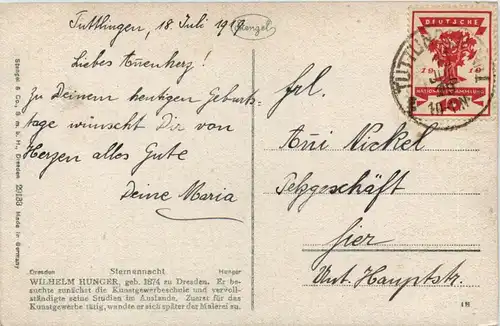 Tuttlingen, 18. Juli 1919
Stengel
Liebes Annenherz!
Zu Deinem heutigen Geburts-
tage wünscht Dir von
Herzen alles Gute
Deine Maria
Frl.
Anni Nickel
Pelzgeschäft
hier
Unt. Hauptstr.
DEUTSCHE
1919
NATIONALVERSAMMLUNG
TUTTLINGEN
Stengel & Co., G. m. b. H., Dresden 29183 Made in Germany
Dresden Sternennacht Hunger
WILHELM HUNGER, geb. 1874 zu Dresden. Er be-
suchte zunächst die Kunstgewerbeschule und vervoll-
ständigte seine Studien im Auslande. Zuerst für das
Kunstgewerbe tätig, wandte er sich später der Malerei zu.